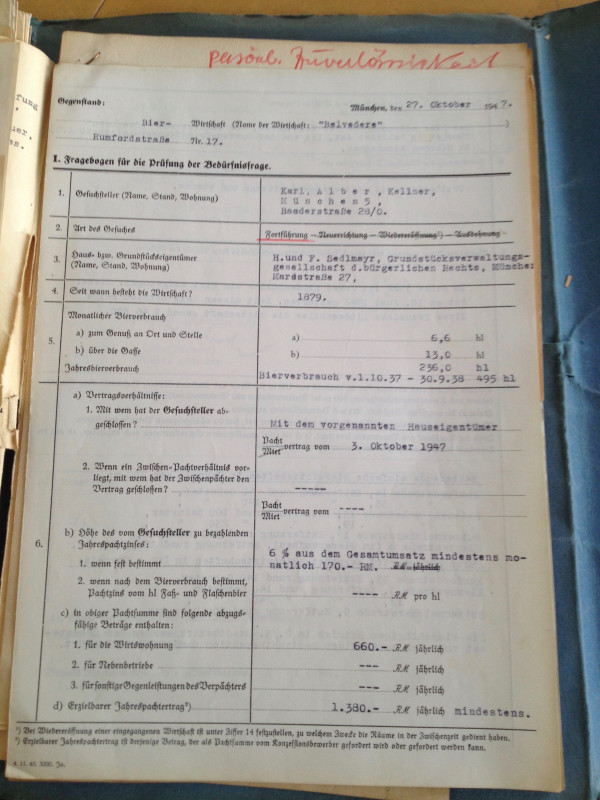 persönl. Zuverlässigkeit
Gegenstand:
München, den 27. Oktober 1947.
Bier- Wirtschaft (Name der Wirtschaft: "Belvedere" )
Rumfordstraße Nr. 17.
I. Fragebogen für die Prüfung der Bedürfnisfrage.
1. Gesuchsteller (Name, Stand, Wohnung)
Karl, A l b e r , Kellner,
M ü n c h e n 5 ,
Baaderstraße 28/0.
2. Art des Gesuches
Fortführung – Neuerrichtung – Wiedereröffnung¹) – Ausdehnung
3. Haus- bzw. Grundstückseigentümer
(Name, Stand, Wohnung)
H.und F. Sedlmayr, Grundstücksverwaltungs-
gesellschaft d.bürgerlichen Rechts, München
Marsstraße 27,
4. Seit wann besteht die Wirtschaft?
1879.
5. Monatlicher Bierverbrauch
a) zum Genuß an Ort und Stelle
a) 6,6 hl
b) über die Gasse
b) 13,0 hl
Jahresbierverbrauch
236,0 hl
Bierverbrauch v.1.10.37 - 30.9.38 495 hl
6. a) Vertragsverhältnisse:
1. Mit wem hat der Gesuchsteller ab-
geschlossen?
Mit dem vorgenannten Hauseigentümer
Pacht
Miet vertrag vom 3. Oktober 1947
2. Wenn ein Zwischen-Pachtverhältnis vor-
liegt, mit wem hat der Zwischenpächter den
Vertrag geschlossen?
-----
Pacht
Miet vertrag vom ----
b) Höhe des vom Gesuchsteller zu bezahlenden
Jahrespachtzinses:
1. wenn fest bestimmt
6 % aus dem Gesamtumsatz mindestens mo-
natlich 170.- RM. RM jährlich
2. wenn nach dem Bierverbrauch bestimmt,
Pachtzins vom hl Faß- und Flaschenbier
---- RM pro hl
c) in obiger Pachtsumme sind folgende abzugs-
fähige Beträge enthalten:
1. für die Wirtswohnung
660.- RM jährlich
2. für Nebenbetriebe
--- RM jährlich
3. für sonstige Gegenleistungen des Verpächters
--- RM jährlich
d) Erzielbarer Jahrespachtertrag²)
1.380.- RM jährlich mindestens.
¹) Bei Wiedereröffnung einer eingegangenen Wirtschaft ist unter Ziffer 14 festzustellen, zu welchem Zwecke die Räume in der Zwischenzeit gedient haben.
²) Erzielbarer Jahrespachtertrag ist derjenige Betrag, der als Pachtsumme vom Konzessionsbewerber gefordert wird oder gefordert werden kann.